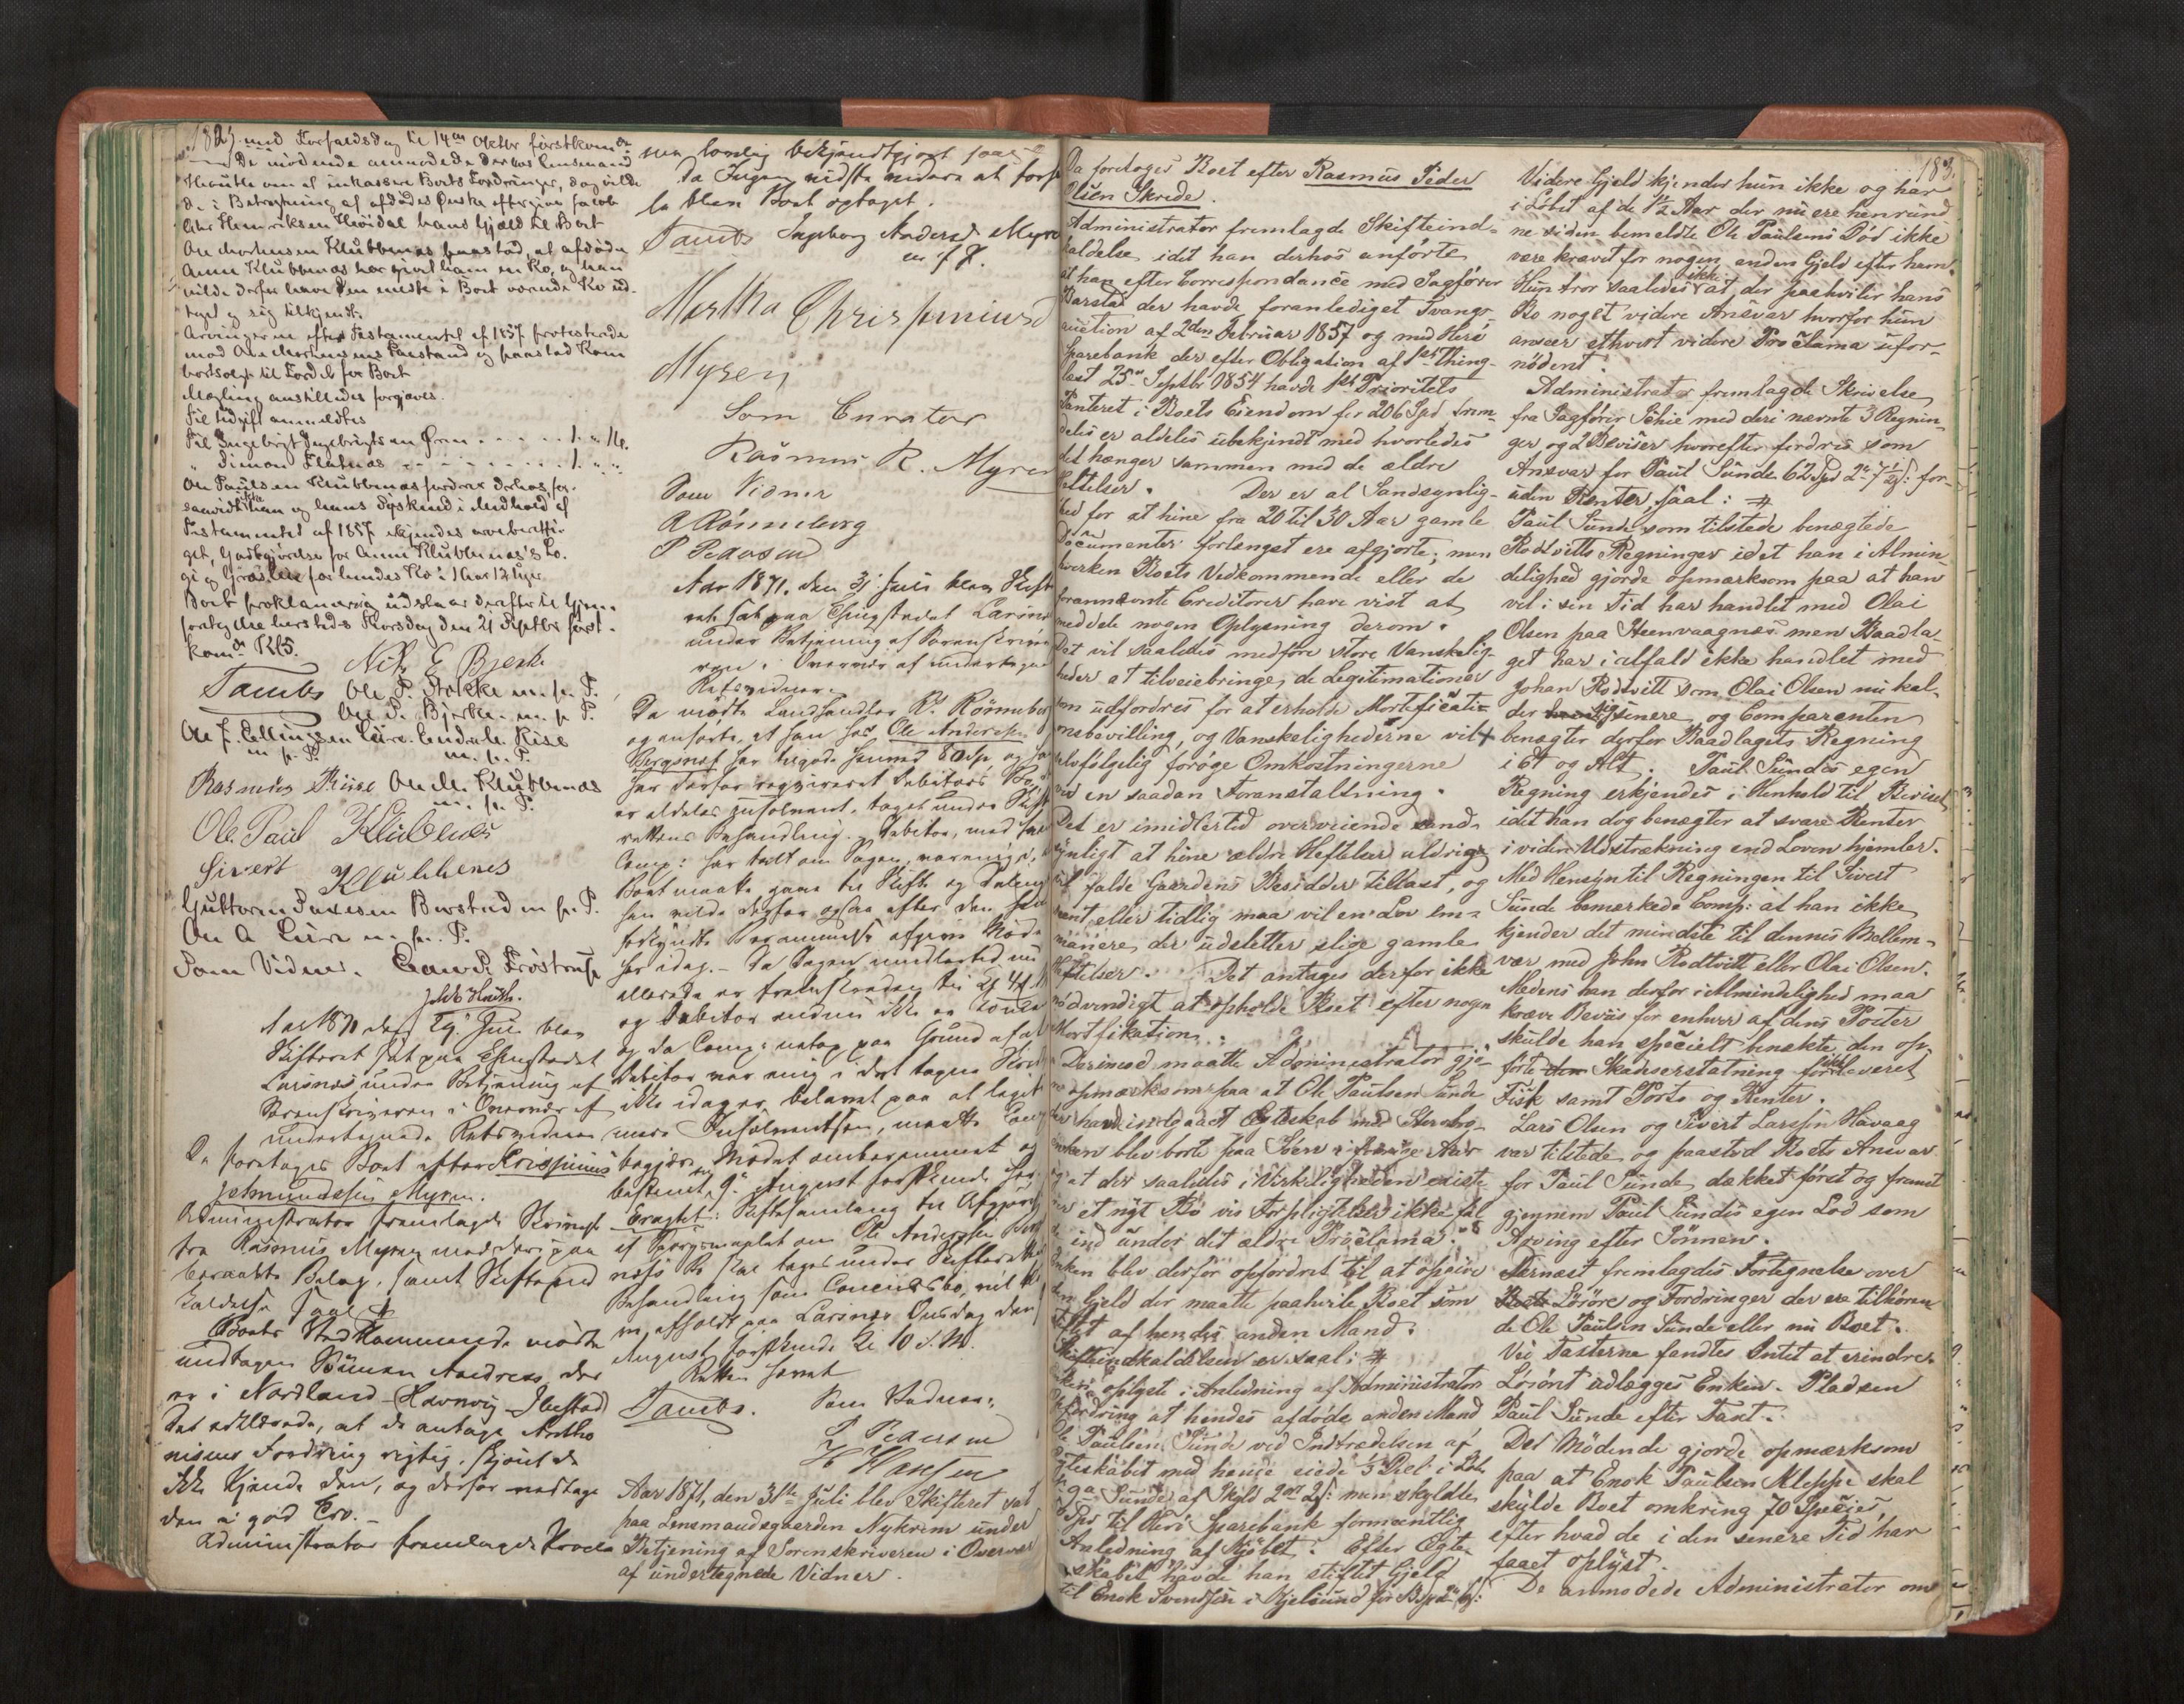 182. med Forfaldsdag til 14en Oktbr førstkomde
De mødende anmodede derhos Lensmand
om at inkassere Boets Fordringer, dog vilde
de i Betragtning af afdødes Ønske eftergive Jacob
Henriksen Høidal hans Gjæld til Boet
Ole Mortensen Klubbenæs paastod, at afdøde
Anne Klubbenæs har givet ham en Ko, og han
vilde derfor have den eneste i Boet værende Ko ud-
taget og sig tilkjendt.
Arvingerne efter Testamentet af 1857 protesterede
mod Ole Mortensens Paastand og paastod Koen
bortsolgt til Fordel for Boet
Mægling anstilledes forgjæves.
Til Udgift anmeldtes
Til Ingebrigt Ingebrigtsen Ørsn . . . . . 1. " 16.
" Simon Flatnæs . . . . . . . . . 1. " "
Ole Paulsen Klubbenæs fordrer derhos, for-
saavidt ikke han og hans Sødskend i Medhold af
Testamentet af 1857 kjendes arveberetti-
get, Godtgjørelse for Anne Klubbenæs's Lo-
gi og for hendes Ko i 1 Aar 12 Uger
Boet proklameres og udsættes derefter til Gjen-
foretagelse hersteds Torsdag den 21 Septbr først-
komde Kl 5.
Tambs Nils E Bjerke
Ole P. Stokke m. p. P.
Ole P. Bjerke m. p. P.
Ole J. Ellingsen Leire. Endre L. Riise
m p. P. m. p. P.
Rasmus Riise Ole M. Klubbenæs
m. p. P.
Ole Paul Klubenes
Sivert Klubbenes
Guttorm Saxesen Berstad m p. P.
Ole A Leire m. p. P.
Som Vidner.
Aar 1871 den 29 Juli blev
Skifteret sat paa Thingstedet
Larsnæs under Betjening af
Sorenskriveren i Overvær af
undertegnede Retsvidner
Da foretages Boet efter Krispinius
Myren.
Administrator fremlagde Skrivelse
fra Rasmus Myren med deri paa
beraabte Bilag. samt Skifteind
kaldelse saal #
Boets Vedkommende mødte
undtagen Sønnen Andreas der
er i Nordland Havnvig Ibestad
Det erklærede, at de antage
Fordring rigtig, skjønt de
ikke kjende den, og derfor vedtage
den i god Tro. -
Administrator fremlagde Procla
ma lovlig bekjendtgjort saal
Da Ingen vidste videre at fores
la blev Boet optaget.
Tambs Ingeborg Andersd Myren
m f P.
Martha Chrispiniusd
Myren
Som Curator
Rasmus R. Myren
Som Vidner
R Rønneberg
P Pedersen
Aar 1871. den 31 Juli blev Skifte
ret sat paa Thingstedet Larsnæs
under Betjening af Sorenskrive
ren i Overvær af undertegnede
Retsvidner.
Da mødte Landhandler Rs Rønneberg
og anførte, at han hos Ole Andersen
Bergsnæs har tilgode henimod 80 Spd, og
har derfor requireret Debitors Bo, der
er aldeles insolvent, taget under Skifte
rettens Behandling. Debitor, med hvem
Comp: har talt om Sagen, var enig i, at
Boet maatte gaa til Skifte og Deling
han vilde derfor ogsaa efter den ham
forkyndte Berammelse afgive Møde
her idag. - Da Dagen imidlertid nu
allerede er fremskreden til Kl
og Debitor endnu ikke er kommen
og da Comp: netop paa Grund af at
Debitor var enig i det tagne Skridt
ikke idag er belavet paa at lægitimere
Insolventsen, maatte Comp
begjære Mødet omberammet og
bestemt til 9. August førstkomende her.
Eragtet: Skiftesamling til Afgjørelse
af Spørgsmaalet om Ole Andersen Bergs
næs's Bo skal tages under Skifterettens
Behandling som Concursbo, vil blive
afholdt paa Larsnæs Onsdag den 9
August førstkomde Kl 10 F. M.
Retten hævet
Tambs. Som Vidner:
P Pedersen
H Hansen
Aar 1871, den 31te Juli blev Skifteret sat
paa Lensmandsgaarden Nykrem under
Betjening af Sorenskriveren i Overvær
af undertegnede Vidner.
183.
Da foretoges Boet efter Rasmus Peder
Olsen Skrede.
Administrator fremlagde Skifteind-
kaldelse idet han derhos anførte
at han efter Correspondance med Sagfører
Barstad der havde foranlediget Tvangs-
auction af 2den Februar 1857 og med Herø
Sparebank der efter Obligation af 1ste Thing-
læst 25de Septbr 1854 havde 1ste Prioritets
Panteret i Boets Eiendom for 206 Spd frem-
deles er aldeles ubekjendt med hvorledes
det hænger sammen med de ældre
Heftelser. Der er al Sandsynlig-
hed for at hine fra 20 til 30 Aar gamle
Documenter forlengst ere afgjorte; men
hverken Boets Vedkommende eller de
forannævnte Creditorer have vist at
meddele nogen Oplysning derom.
Det vil saaledes medføre store Vanskelig-
heder at tilveiebringe, de Legitimationer
som udfordres for at erholde Mortificatio-
nsbevilling, og Vanskelighederne vil
selvfølgelig forøge Omkostningerne
ved en saadan Foranstaltning.
Det er imidlertid overveiende sand-
synligt at hine ældre Heftelser aldrig
vil falde Gaardens Besidder tillast, og
sent eller tidlig maa vil en Lov em-
manere, der udsletter slige gamle
Heftelser. Det antages derfor ikke
nødvendigt at opholde Boet efter nogen
Mortifikation.
Derimod maatte Administrator gjø-
re opmærksom paa at Ole Paulsen Sunde
der havde indgaaet Ægteskab med Stervbo-
enken blev borte paa Søen i forrige Aar
og at der saaledes i Virkeligheden existe-
rer et nyt Bo vis Forpligtelser ikke fal
de ind under det ældre Proclama.
Enken blev derfor opfordret til at opgive
den Gjeld der maatte paahvile Boet som
stiftet af hendes anden Mand.
Skifteindkaldelsen er saal: #
Enken oplyste i Anledning af Administrators
Opfordring at hendes afdøde anden Mand
Ole Paulsen Sunde ved Indtrædelsen af
Ægteskabet med hende eiede 1/3 Deel i Løb
Sunde af Skyld 2 ort 2 s: men skyldte
Spd til Herø Sparebank formentlig
Anledning af Kjøbet. Efter Ægte-
skabet havde han stiftet Gjeld
til Enok Svendsen i Kjelsund for
Videre Gjeld kjender hun ikke og har
i Løbet af de 1½ Aar der nu ere henrund-
ne siden bemeldte Ole Paulsens Død ikke
være krævet for nogen anden Gjeld efter ham.
Hun tror saaledes ikke at der paahviler hans
Bo noget videre Ansvar hvorfor hun
anseer ethvert videre Proclama ufor-
nødent.
Administrator fremlagde Skrivelse
fra Sagfører Schie med deri nævnte 3 Regnin-
ger og 2 Beviser hvorefter fordres som
Ansvar for Paul Sunde 62 Spd 2 ort 7½ s: for-
uden Renter, saal: #
Paul Sunde som tilstede benægtede
Rodtvitts Regninger idet han i Almin-
delighed gjorde opmærksom paa at han
vel i sin Tid har handlet med Olai
Olsen paa Steenvaagnæs men Baadla-
get har i alfald ikke handlet med
Johan Rodtvitt som Olai Olsen nu kal-
der sig senere, og Comparenten
benægter derfor Baadlagets Regning
i Et og Alt. Paul Sundes egen
Regning erkjendes i Henhold til Beviset
idet han dog benægter at svare Renter
i videre Udstrækning end Loven hjemler.
Med Hensyn til Regningen til Sivert
Sunde bemærkede Comp: at han ikke
kjender det mindste til dennes Mellem-
vær med John Rodtvitt eller Olai Olsen.
Medens han derfor i Almindelighed maa
kræve Beviis for enhver af dens Poster
skulde han specielt benekte den op-
førte Skadeserstatning for ikke leveret
Fisk samt Porto og Renter.
Lars Olsen og Sivert Larsen Havaag
var tilstede og paastod Boets Ansvar
for Paul Sunde dækket først og fremst
gjennem Paul Sundes egen Lod som
Arving efter Sønnen.
Dernæst fremlagdes Fortegnelse over
Løsøre og Fordringer der ere tilhøren-
de Ole Paulsen Sunde eller nu Boet.
Ved Taxterne fandtes Intet at erindre.
Løsøret udlægges Enken. Pladsen
Paul Sunde efter Taxt.
Det Mødende gjorde opmærksom
paa at Enok Paulsen Kleppe skal
skylde Boet omkring 70 Species,
efter hvad de i den senere Tid har
faaet oplyst.
De anmodede Administrator om